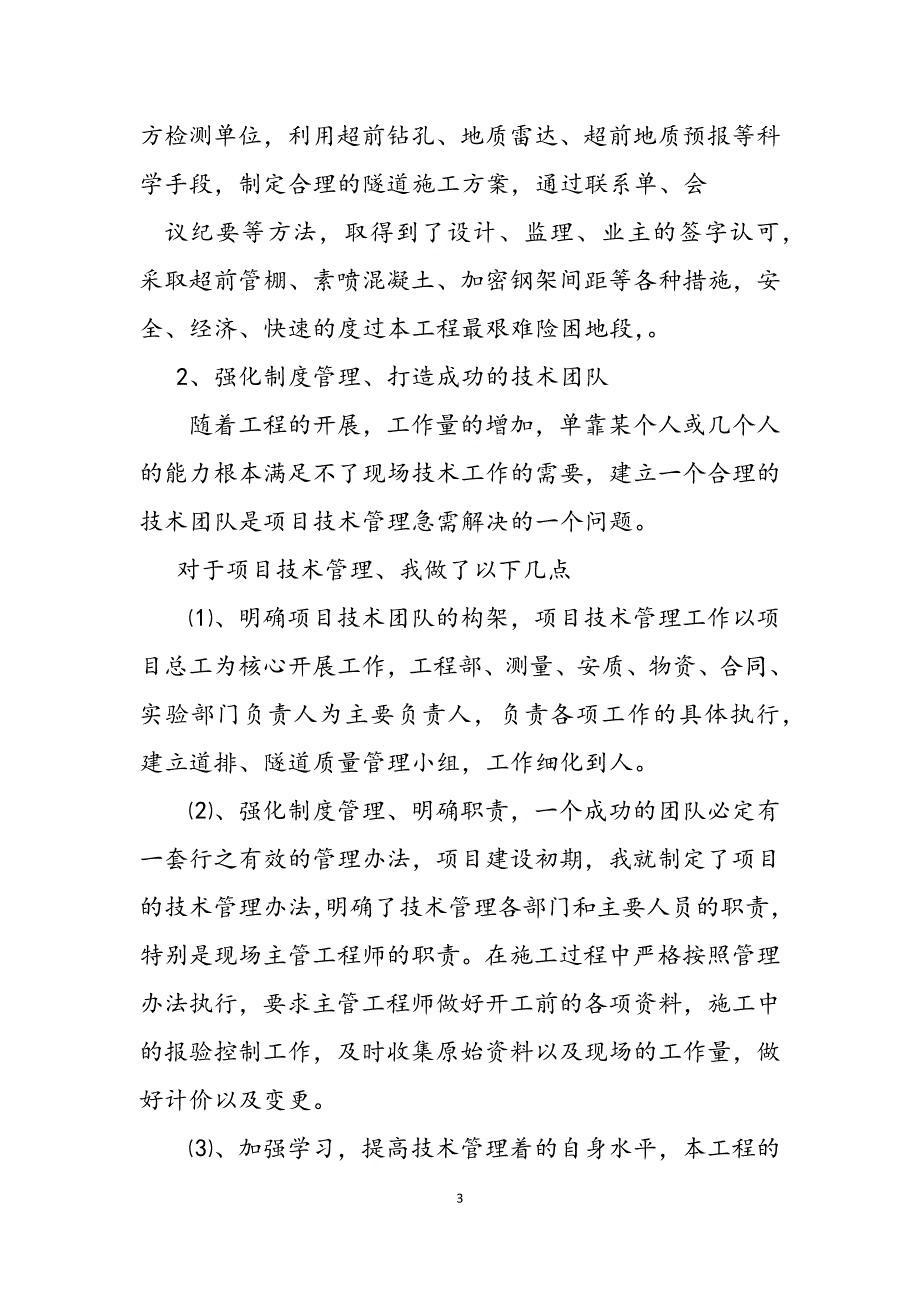 方检测单位，利用超前钻孔、地质雷达、超前地质预报等科
学手段，制定合理的隧道施工方案，通过联系单、会
议纪要等方法，取得到了设计、监理、业主的签字认可，
采取超前管棚、素喷混凝土、加密钢架间距等各种措施，安
全、经济、快速的度过本工程最艰难险困地段，。
2、强化制度管理、打造成功的技术团队
随着工程的开展，工作量的增加，单靠某个人或几个人
的能力根本满足不了现场技术工作的需要，建立一个合理的
技术团队是项目技术管理急需解决的一个问题。
对于项目技术管理、我做了以下几点
⑴、明确项目技术团队的构架，项目技术管理工作以项
目总工为核心开展工作，工程部、测量、安质、物资、合同、
实验部门负责人为主要负责人，负责各项工作的具体执行，
建立道排、隧道质量管理小组，工作细化到人。
⑵、强化制度管理、明确职责，一个成功的团队必定有
一套行之有效的管理办法，项目建设初期，我就制定了项目
的技术管理办法，明确了技术管理各部门和主要人员的职责，
特别是现场主管工程师的职责。在施工过程中严格按照管理
办法执行，要求主管工程师做好开工前的各项资料，施工中
的报验控制工作，及时收集原始资料以及现场的工作量，做
好计价以及变更。
⑶、加强学习，提高技术管理着的自身水平，本工程的
3